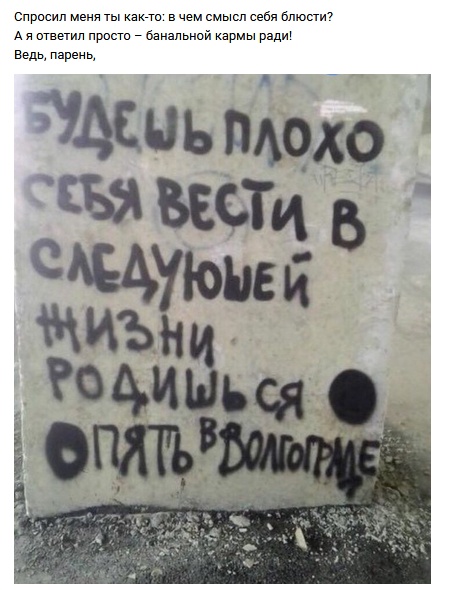 Спросил меня ты как-то: в чем смысл себя блюсти?
А я ответил просто – банальной кармы ради!
Ведь, парень,
БУДЕШЬ ПЛОХО
СЕБЯ ВЕСТИ В
СЛЕДУЮШЕЙ
ЖИЗНИ
РОДИШЬСЯ
ОПЯТЬ В ВОЛГОГРАДЕ